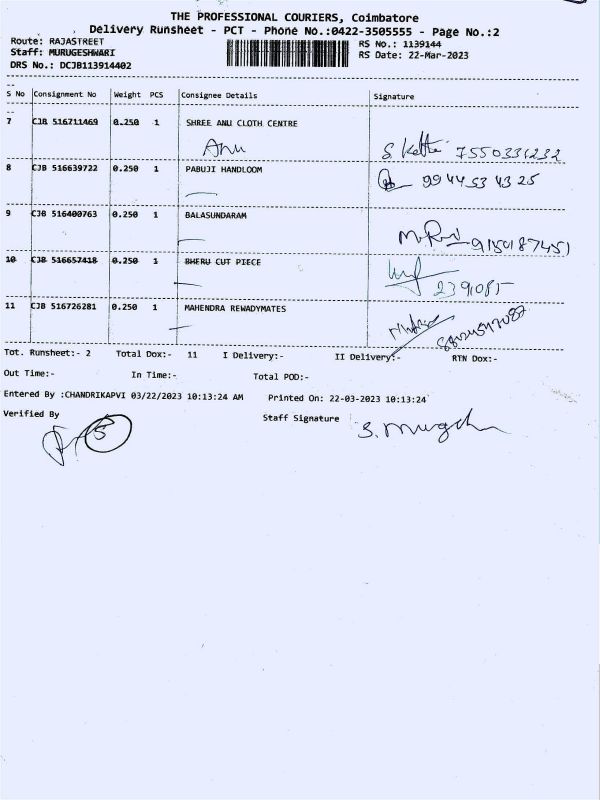 THE PROFESSIONAL COURIERS, Coimbatore
Delivery Runsheet - PCT - Phone No.:0422-3505555 - Page No.:2
Route: RAJASTREET
RS No.: 1139144
Staff: MURUGESHWARI
RS Date: 22-Mar-2023
DRS No.: DCJB113914402
S No Consignment No Weight PCS Consignee Details Signature
7 CJB 516711469 0.250 1 SHREE ANU CLOTH CENTRE
Anu 7550331232
8 CJB 516639722 0.250 1 PABUJI HANDLOOM 9944534325
9 CJB 516400763 0.250 1 BALASUNDARAM
9150187451
10 CJB 516657418 0.250 1 BHERU CUT PIECE
2391085
11 CJB 516726281 0.250 1 MAHENDRA REWADYMATES
Tot. Runsheet:- 2 Total Dox:- 11 I Delivery:- II Delivery:- RTN Dox:-
Out Time:- In Time:- Total POD:-
Entered By :CHANDRIKAPVI 03/22/2023 10:13:24 AM Printed On: 22-03-2023 10:13:24
Verified By Staff Signature